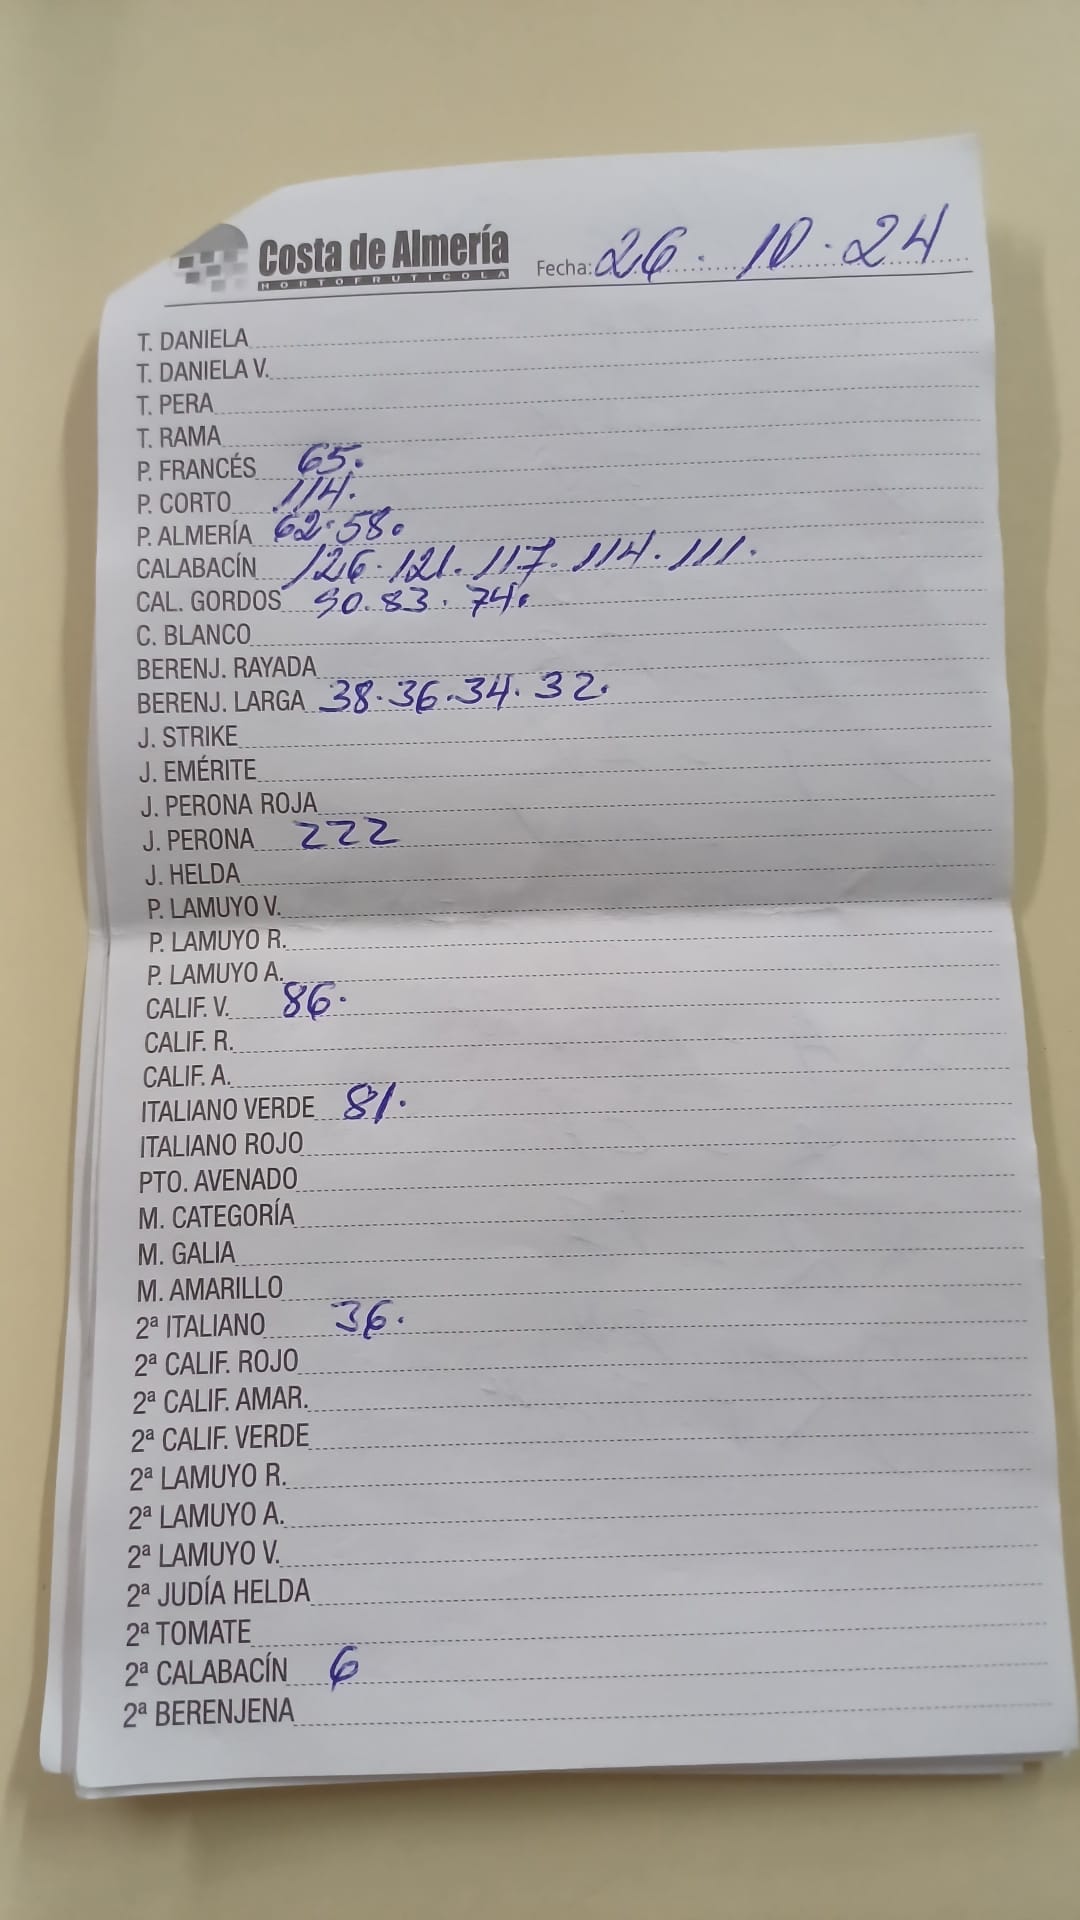 Costa de Almería
HORTOFRUTICOLA
Fecha: 26. 10. 24
T. DANIELA
T. DANIELA V.
T. PERA
T. RAMA
P. FRANCÉS 65.
P. CORTO 114.
P. ALMERÍA 62.58.
CALABACÍN 126.121.117.114.111.
CAL. GORDOS 90.83.74.
C. BLANCO
BERENJ. RAYADA
BERENJ. LARGA 38.36.34.32.
J. STRIKE
J. EMÉRITE
J. PERONA ROJA
J. PERONA 222
J. HELDA
P. LAMUYO V.
P. LAMUYO R.
P. LAMUYO A.
CALIF. V. 86.
CALIF. R.
CALIF. A.
ITALIANO VERDE 81.
ITALIANO ROJO
PTO. AVENADO
M. CATEGORÍA
M. GALIA
M. AMARILLO
2ª ITALIANO 36.
2ª CALIF. ROJO
2ª CALIF. AMAR.
2ª CALIF. VERDE
2ª LAMUYO R.
2ª LAMUYO A.
2ª LAMUYO V.
2ª JUDÍA HELDA
2ª TOMATE
2ª CALABACÍN 6
2ª BERENJENA